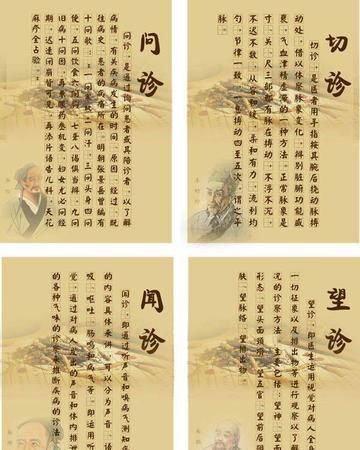 问诊
问诊，是通过询问患者或其陪诊者，以了解
病情，有关疾病发生的时间、原因、经过、既
往病史、患者的病痛所在，明朝张景岳曾编有
十问歌：一问寒热二问汗，三问头身四问
便，五问饮食六问胸，七聋八渴俱当辨，九问
旧病十问因，再兼服药参机变，妇女尤必问经
期，迟速闭崩皆可见，再添片语告儿科，天花
麻疹全占验。
切诊
切诊，是医者用手指按其腕后挠动脉搏
动处，借以体察脉象变化，辨别脏腑功能盛
衰，气血津精虚滞的一种方法。正常脉象是
寸、关、尺三部都有脉在搏动，不浮不沉，
不迟不数，从容和缓，柔和有力，流利均
匀，节律一致，一息搏动四至五次，谓之平
闻诊
闻诊，即通过听声音和嗅病气测知
的内容具体来讲，可以分为声音、语
吸、呕吐、肠鸣和病气等，即运用听
觉，通过对病人发出的声音和体内排泄
的各种气味的诊察来推断疾病的诊法
望诊
望诊，即医生运用视觉对病人全身
一切征象以及排出物等进行观察以了解
况的诊察方法。主要包括：望神、望面
形态、望头面颈项、望五官、望前后阴
肤、望脉络、望排出物。